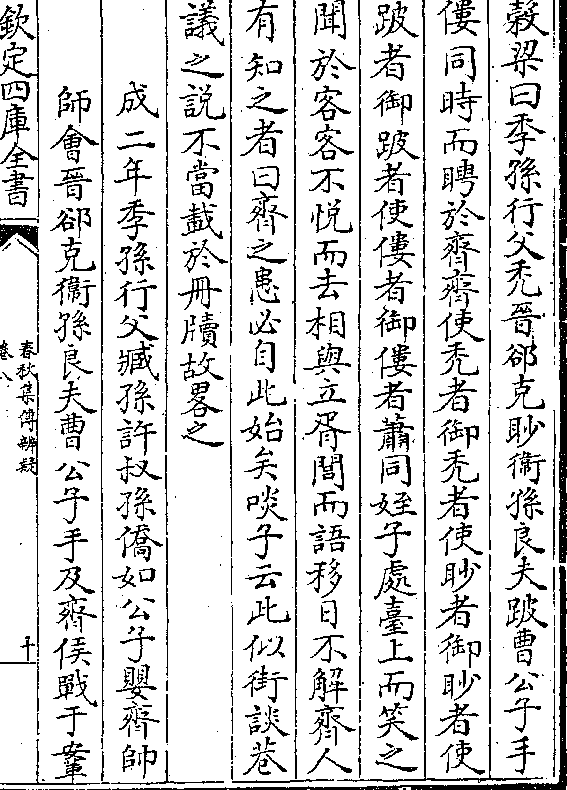 榖梁曰季孫行父秃晉郤克眇衞孫良夫跛曹公子手
僂同時而聘於齊齊使秃者御秃者使眇者御眇者使
跛者御跛者使僂者御僂者蕭同姪子處臺上而笑之
聞於客客不悅而去相與立胥閭而語移日不解齊人
有知之者曰齊之患必自此始矣啖子云此似街談巷
議之説不當載於冊牘故畧之
成二年季孫行父臧孫許叔孫僑如公子嬰齊帥
師會晉郤克衞孫良夫曹公子手及齊侯戰于鞌
欽定四庫全書
春秋集傳辨疑
卷八
十